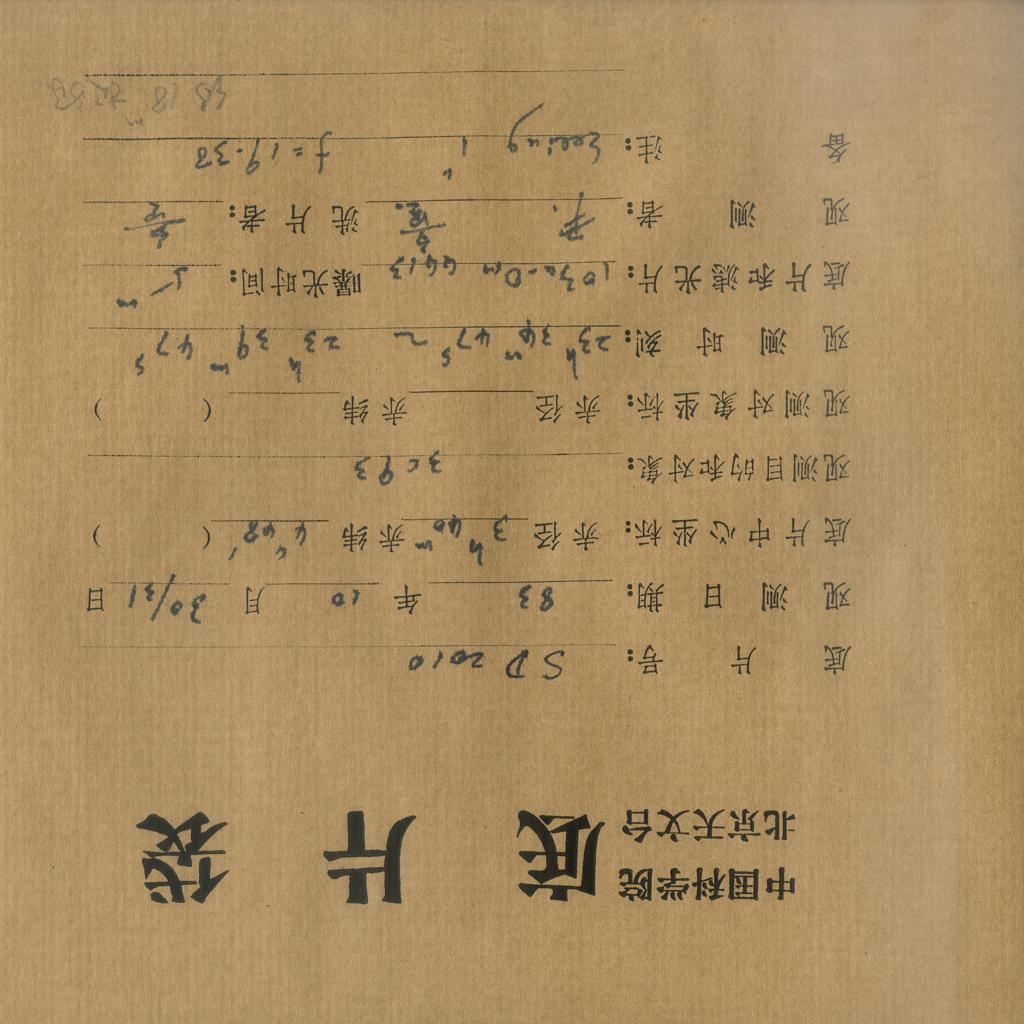 中国科学院
北京天文台
底片袋
底片号: SD 2010
观测日期: 83 年 10 月 30/31 日
底片中心坐标: 赤径 3h 40m 赤纬 4°48′ ( )
观测目的和对象: 3C93
观测对象坐标: 赤径 赤纬 ( )
观测时刻: 23h 34m 47s ~ 23h 39m 47s
底片和滤光片: 103a-O GG13 曝光时间: 5m
观测者: 洗片者:
备注: Seeing 1″ f=19.38